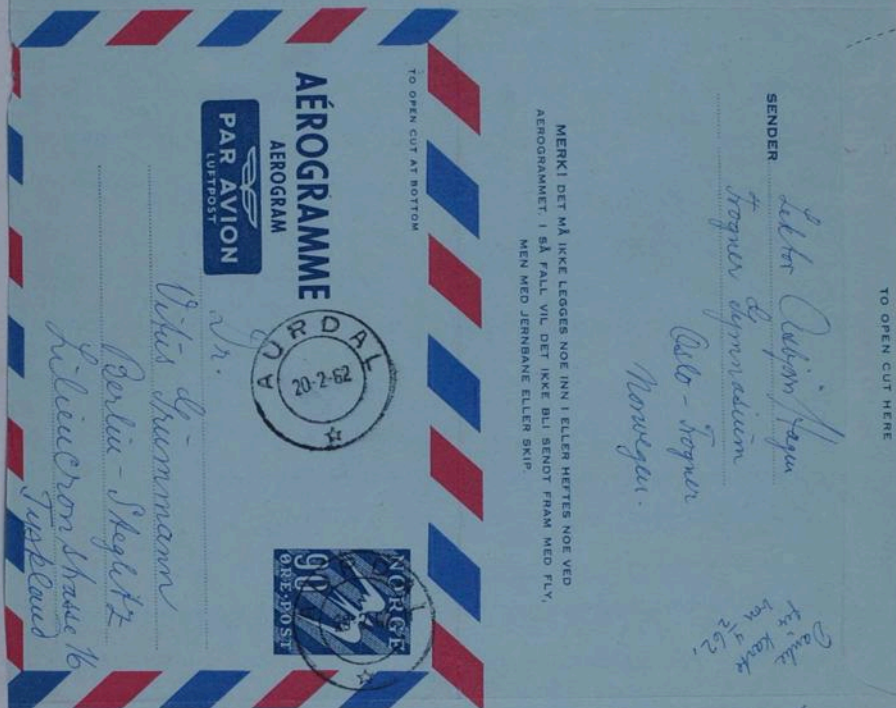 TO OPEN CUT HERE
SENDER Lektor Asbjörn Hagen
Frogner Gymnasium
Oslo - Frogner
Norwegen.
MERK! DET MÅ IKKE LEGGES NOE INN I ELLER HEFTES NOE VED
AEROGRAMMET. I SÅ FALL VIL DET IKKE BLI SENDT FRAM MED FLY,
MEN MED JERNBANE ELLER SKIP.
TO OPEN CUT AT BOTTOM
AÉROGRAMME
AEROGRAM
PAR AVION
LUFTPOST
AURDAL
20-2-62
NORGE
90
ØRE·POST
Dr.
Vitus Grummann
Berlin - Steglitz
Liliencronstrasse 16
Tyskland